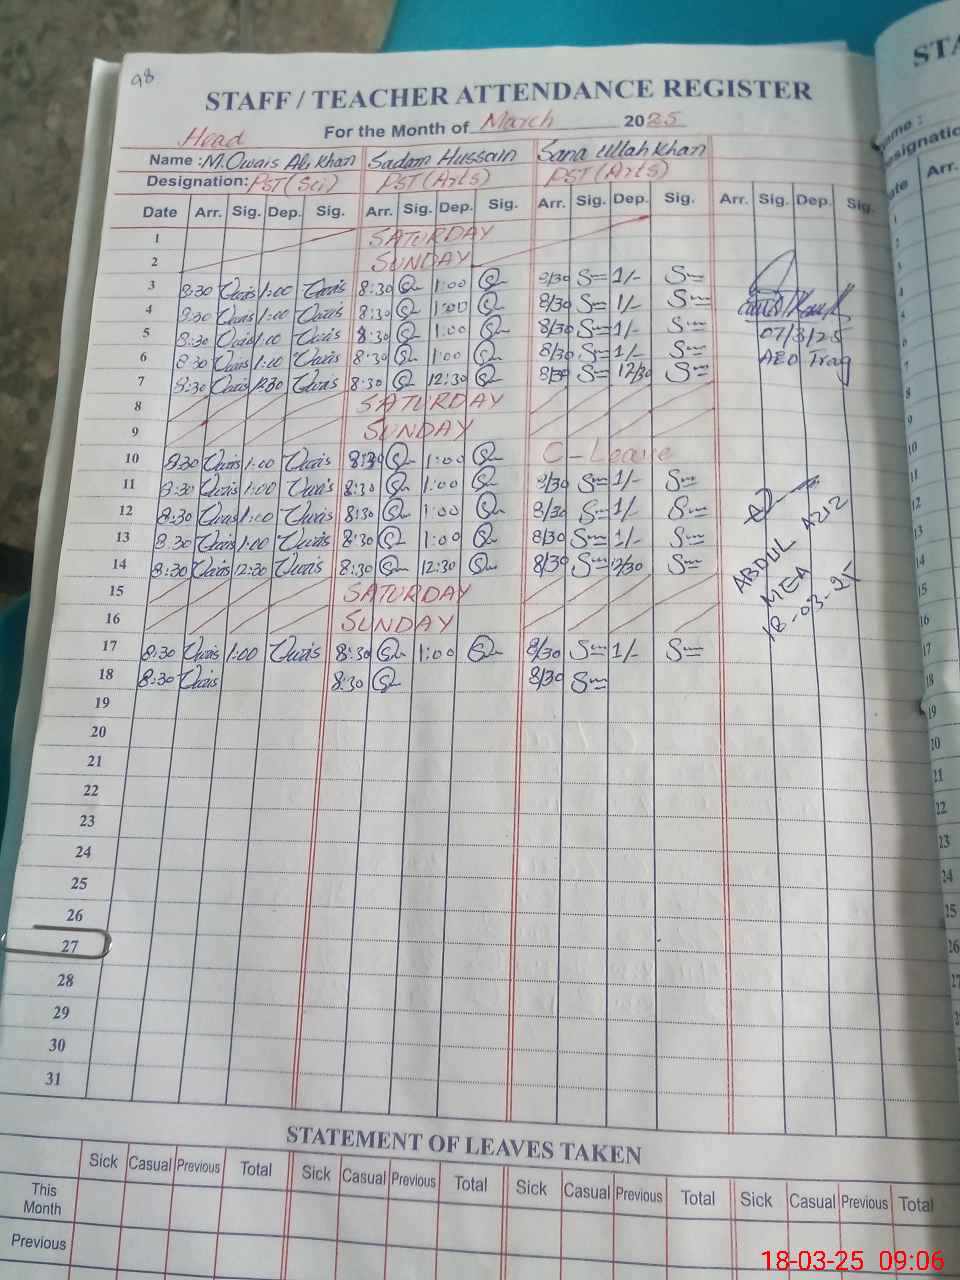 98
STAFF / TEACHER ATTENDANCE REGISTER
Head For the Month of March 2025
Name : M. Owais Ali Khan Sadam Hussain Sana ullah Khan
Designation: PST (Sci) PST (Arts) PST (Arts)
Date Arr. Sig. Dep. Sig. Arr. Sig. Dep. Sig. Arr. Sig. Dep. Sig. Arr. Sig. Dep. Sig.
1 SATURDAY
2 SUNDAY
3 8:30 Owais 1:00 Owais 8:30 1:00 8/30 1/-
4 8:30 Owais 1:00 Owais 8:30 1:00 8/30 1/-
5 8:30 Owais 1:00 Owais 8:30 1:00 8/30 1/-
6 8:30 Owais 1:00 Owais 8:30 1:00 8/30 1/-
7 8:30 Owais 12:30 Owais 8:30 12:30 8/30 12/30
8 SATURDAY
9 SUNDAY
10 8:30 Owais 1:00 Owais 8:30 1:00 C-Leave
11 8:30 Owais 1:00 Owais 8:30 1:00 8/30 1/-
12 8:30 Owais 1:00 Owais 8:30 1:00 8/30 1/-
13 8:30 Owais 1:00 Owais 8:30 1:00 8/30 1/-
14 8:30 Owais 12:30 Owais 8:30 12:30 8/30 12/30
15 SATURDAY
16 SUNDAY
17 8:30 Owais 1:00 Owais 8:30 1:00 8/30 1/-
18 8:30 Owais 8:30 8/30
19
20
21
22
23
24
25
26
27
28
29
30
31
07/3/25
ABDUL AZIZ
MEA
18-03-25
STATEMENT OF LEAVES TAKEN
Sick Casual Previous Total Sick Casual Previous Total Sick Casual Previous Total Sick Casual Previous Total
This
Month
Previous
STA
Arr.
18-03-25 09:06